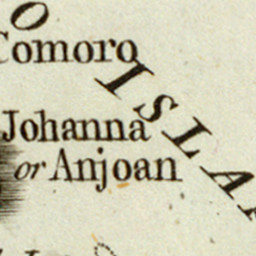 Comoro
Johanna
or Anjoan